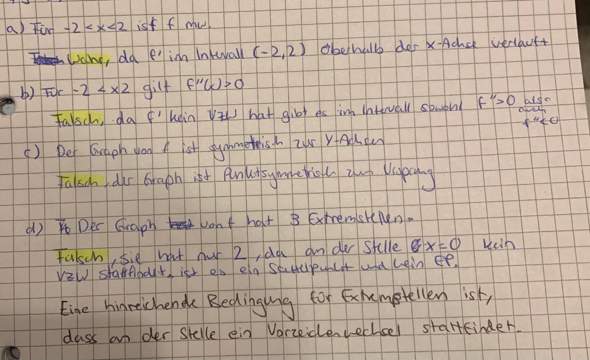 a) Für -2<x<2 ist f mw.
Wahr, da f' im Intervall (-2,2) oberhalb der x-Achse verläuft
b) Für -2<x2 gilt f''(x)>0
Falsch, da f' kein VZW hat gibt es im Intervall sowohl f''>0 als
auch
f''<0
c) Der Graph von f ist symmetrisch zur Y-Achse
Falsch, der Graph ist Punktsymmetrisch zum Ursprung
d) Der Graph von f hat 3 Extremstellen.
Falsch, sie hat nur 2, da an der Stelle x=0 kein
VZW stattfindet, ist es ein Sattelpunkt und kein EP.
Eine hinreichende Bedingung für Extremstellen ist,
dass an der Stelle ein Vorzeichenwechsel stattfindet.